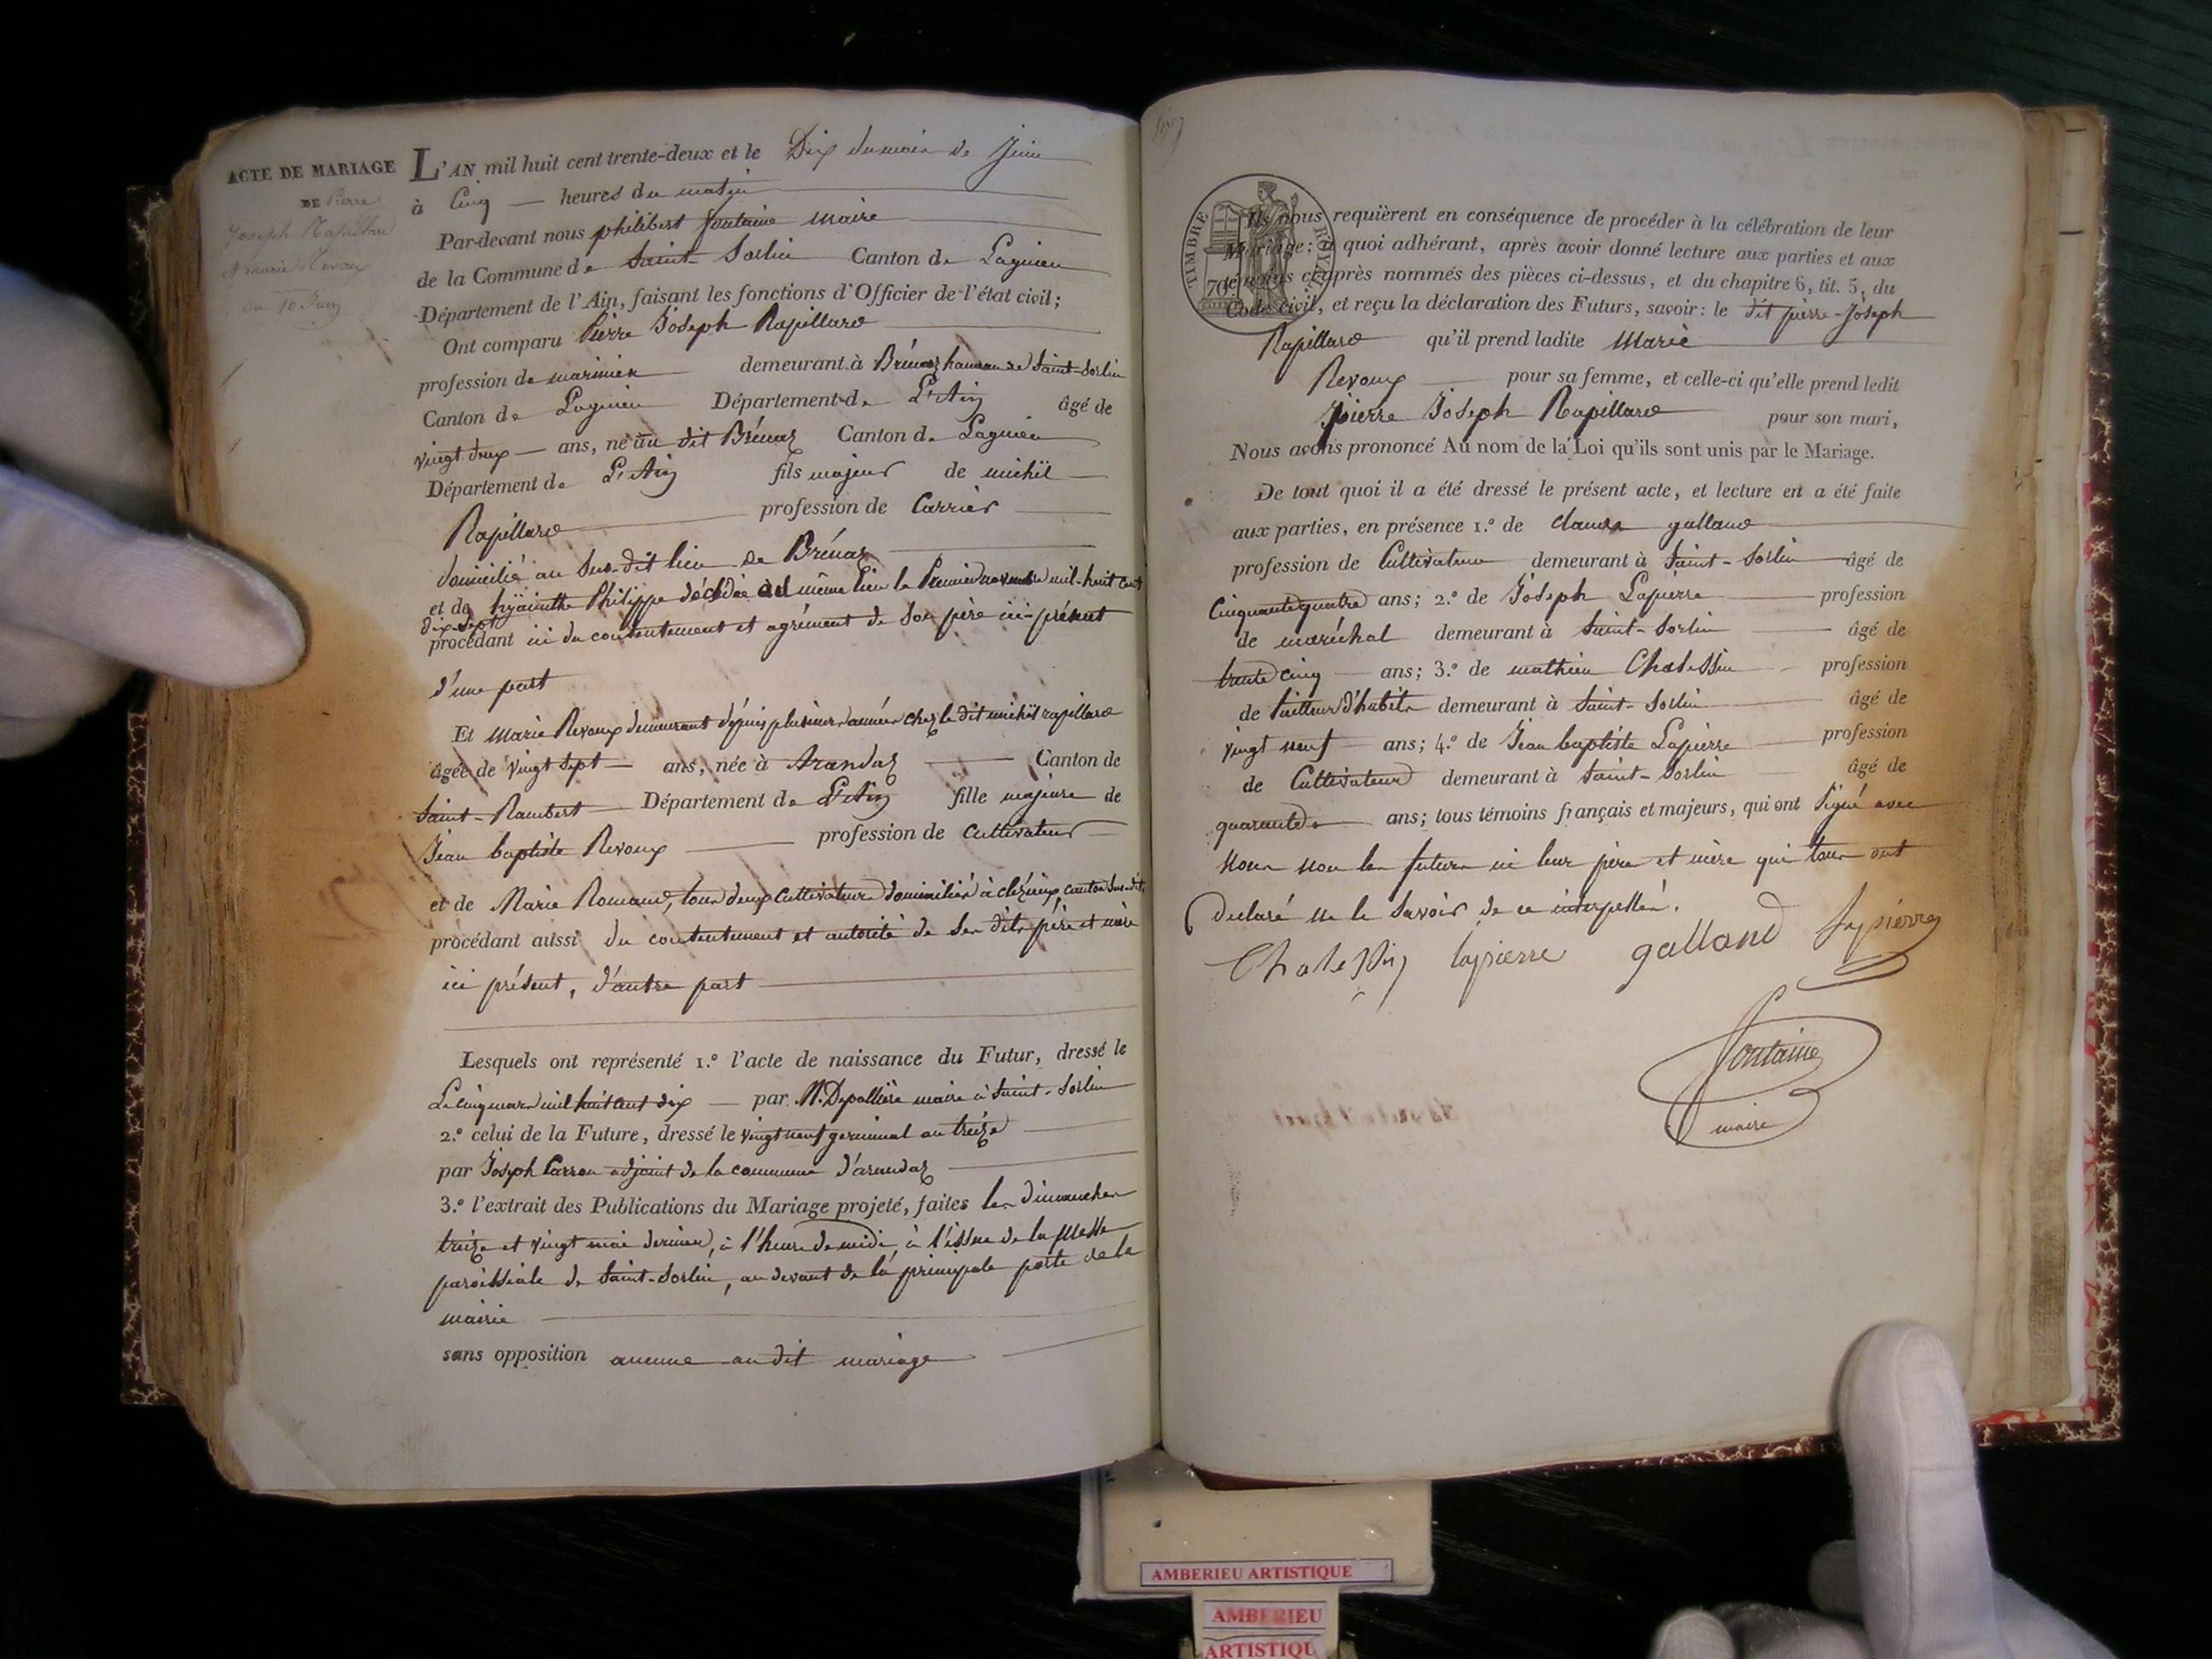 ACTE DE MARIAGE
DE Pierre
Joseph Rapillard
et marie Revoux
du 10 Juin
L'AN mil huit cent trente-deux et le Dix du mois de Juin
à Cinq heures du matin
Par-devant nous philibert fontaine maire
de la Commune de Saint-Sorlin Canton de Lagnieu
Département de l'Ain, faisant les fonctions d'Officier de l'état civil;
Ont comparu Pierre Joseph Rapillard
profession de marinier demeurant à Brénaz hameau de Saint-Sorlin
Canton de Lagnieu Département de L'Ain âgé de
vingt deux ans, né au dit Brénaz Canton de Lagnieu
Département de L'Ain fils majeur de michel
Rapillard profession de Carrier
domicilié au Sus-dit lieu de Brénaz
et de hyacinthe Philippe décédée au même lieu le Premier novembre mil-huit cent
dix sept
procédant ici du contentement et agrément de Son père ici-présent
d'une part
Et marie Revoux demeurant depuis plusieurs années chez le dit michel rapillard
âgée de vingt Sept ans, née à Arandaz Canton de
Saint-Rambert Département de L'Ain fille majeure de
Jean baptiste Revoux profession de Cultivateur
et de Marie Romand, tous deux Cultivateurs domiciliés à clézieux, canton Sus-dit
procédant aussi du contentement et autorité de Ses dits père et mère
ici présent, d'autre part
Lesquels ont représenté 1.º l'acte de naissance du Futur, dressé le
Le cinq mars mil huit cent dix par M. Depallière maire à Saint-Sorlin
2.º celui de la Future, dressé le vingt neuf germinal an treize
par Joseph Carron adjoint de la commune d'arandaz
3.º l'extrait des Publications du Mariage projeté, faites les dimanches
treize et vingt mai dernier, à l'heure de midi, à l'issue de la Messe
paroissiale de Saint-Sorlin, au devant de la principale porte de la
mairie
sans opposition aucune au dit mariage
TIMBRE ROYAL
70
Ils nous requièrent en conséquence de procéder à la célébration de leur
Mariage: à quoi adhérant, après avoir donné lecture aux parties et aux
témoins ci-après nommés des pièces ci-dessus, et du chapitre 6, tit. 5, du
Code civil, et reçu la déclaration des Futurs, savoir: le dit pierre-Joseph
Rapillard qu'il prend ladite Marie
Revoux pour sa femme, et celle-ci qu'elle prend ledit
pierre Joseph Rapillard pour son mari,
Nous avons prononcé Au nom de la Loi qu'ils sont unis par le Mariage.
De tout quoi il a été dressé le présent acte, et lecture en a été faite
aux parties, en présence 1.º de claude galland
profession de Cultivateur demeurant à Saint-Sorlin âgé de
Cinquante quatre ans; 2.º de Joseph Lapierre profession
de maréchal demeurant à Saint-Sorlin âgé de
trente cinq ans; 3.º de mathieu Chatessin profession
de tailleur d'habits demeurant à Saint-Sorlin âgé de
vingt neuf ans; 4.º de Jean baptiste Lapierre profession
de Cultivateur demeurant à Saint-Sorlin âgé de
quarante ans; tous témoins français et majeurs, qui ont Signé avec
nous non les futurs ni leur père et mère qui tous ont
Déclaré ne le Savoir de ce interpellés.
lapierre galland lapierre
fontaine
maire
AMBERIEU ARTISTIQUE
AMBERIEU
ARTISTIQU